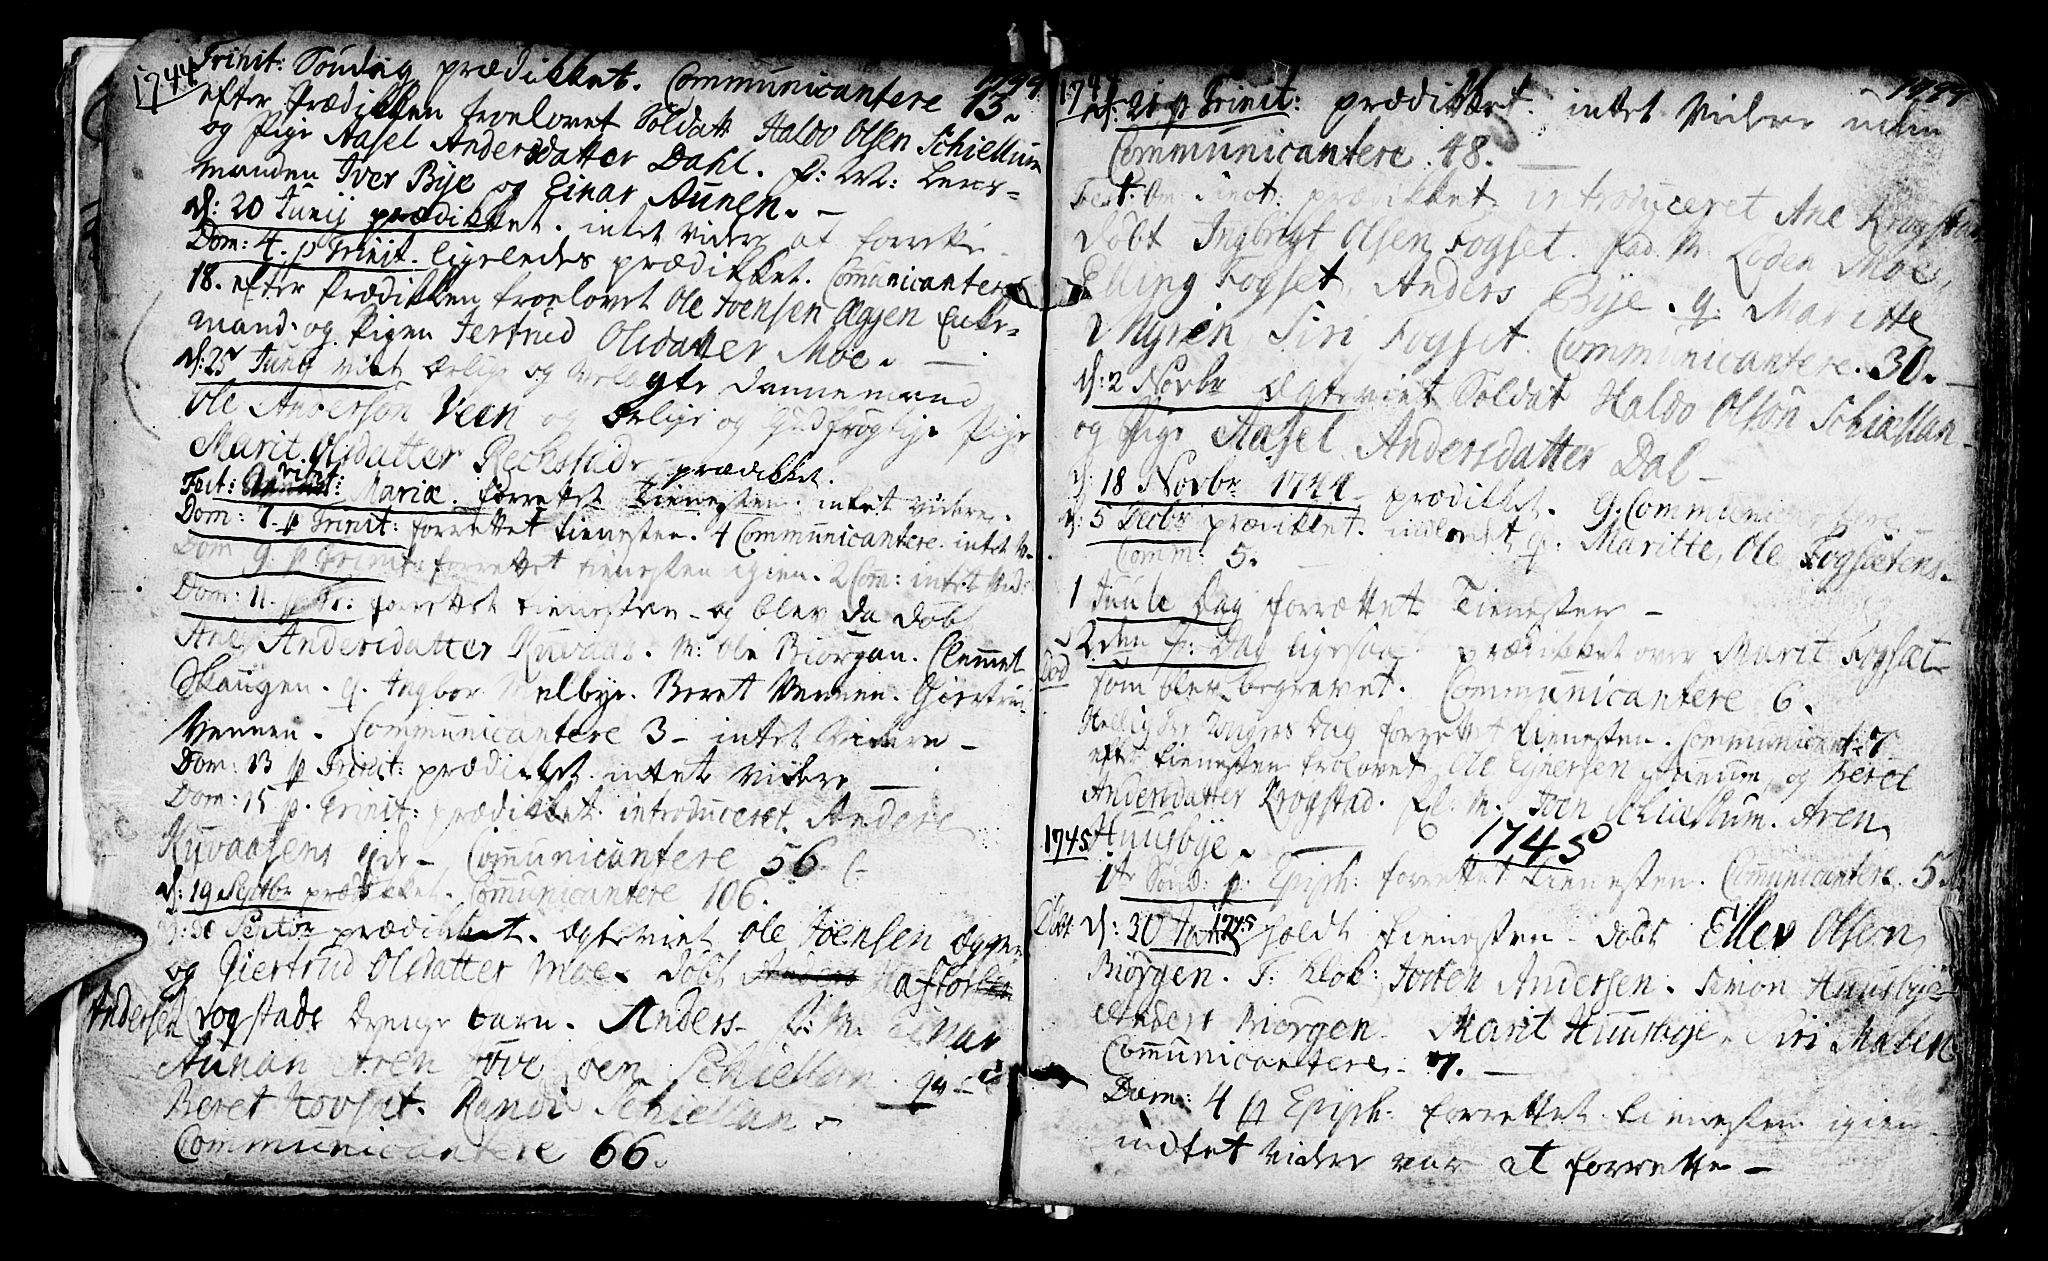 1744
Trinit: Søndag prædikket. Communicantere 13.
efter Prædikken troelovet Soldatt Haldo Olsen Schiellum
og Pige Aasel Andersdatter Dahl. F: M: Lens-
manden Iver Bye og Einar Aunen. -
d: 20 Junij prædikket. intet videre at forrette
Dom: 4. p Trinit. ligeledes prædikket. Communicantere
18. efter Prædikken troelovet Ole Joensen Eggen Enke-
mand. og Pigen Jertrud Olsdatter Moe. -
d: 25 Junij viet ærlige og velagte Dannemand
Ole Anderson Veen og ærlige og Gudfrøgtige Pige
Marit Olsdatter Reckstad.
prædikket.
Fest: visit: Mariæ. forrettet Tienesten. intet videre.
Dom: 7. p Trinit: forrettet tienesten. 4 Communicantere. intet v.
Dom 9. p Trinit: forrettet tienesten igien. 2 Com: intet vid:
Dom: 11. p Tr: forrettet tienesten - og blev da døbt
Ane Andersdatter Kuvaas. M: Ole Biørgan. Clemmet
Skaugen. q. Ingbor Melbye. Beret Vennen. Giertru
Vennen. Communicantere 3 - intet videre -
Dom: 13 p Trinit: prædikket. intet videre -
Dom: 15 p. Trinit: prædikket. introduceret Anders
Kuvaasens qde - Communicantere 56
d: 19 Septbr prædikket. Communicantere 106.
d: 30 Septbr prædikket. ægteviet Ole Joensen Eggen
og Giertrud Olsdatter Moe. døbt
Andersen Krogstads Drenge barn. Anders. F: M. Einar
Aunan Aren Joen Schiellan. q
Beret Hovset. Randi Schiellan.
Communicantere 66.
1744
1744
d: 21 p Trinit: prædikket. intet videre uden
Communicantere. 48. -
Fest: prædikket introduceret Ane Krogstad
døbt Ingbrigt Olsen Fogset. Fad. M. Loden Moe,
Elling Fogset, Anders Bye. q: Maritte
Myren, Siri Fogset. Communicantere. 30. -
d: 2 Novbr Ægteviet Soldat Haldo Olsøn Schiellan
og Pige Aasel Andersdatter Dal -
d. 18 Novbr 1744 prædikket. 9. Communicantere -
d. 5 Decbr prædikket. indledet q. Maritte, Ole Fogsætens.
Comm: 5.
1 Juule Dag forrættet Tienesten -
2den J: Dag ligesaa. prædikket over Marit Fogsæt
Død
som blev begravet. Communicantere 6.
Hellig tre Kongers Dag forrettet tienesten. Communicant: 7
eft: tienesten trolovet Ole Ejnersen Aunum og Beret
Andersdatter Krogstad. F. M. Joen Schiellum. Aren
Huusbye. -
1745
1745
1ste Sønd: p. Epiph: forrettet tienesten. Communicantere. 5.
Døbt
d: 30 1745 holdt tienesten - døbt Ellev Olsøn
Biørgen. F: Klok: Torsten Andersen. Simon Huusbye
Anders Biørgen. Marit Huusbye. Siri Malen
Communicantere. 7. -
Dom: 4 p Epiph: forrettet tienesten igien.
indtet videre var at forrette -